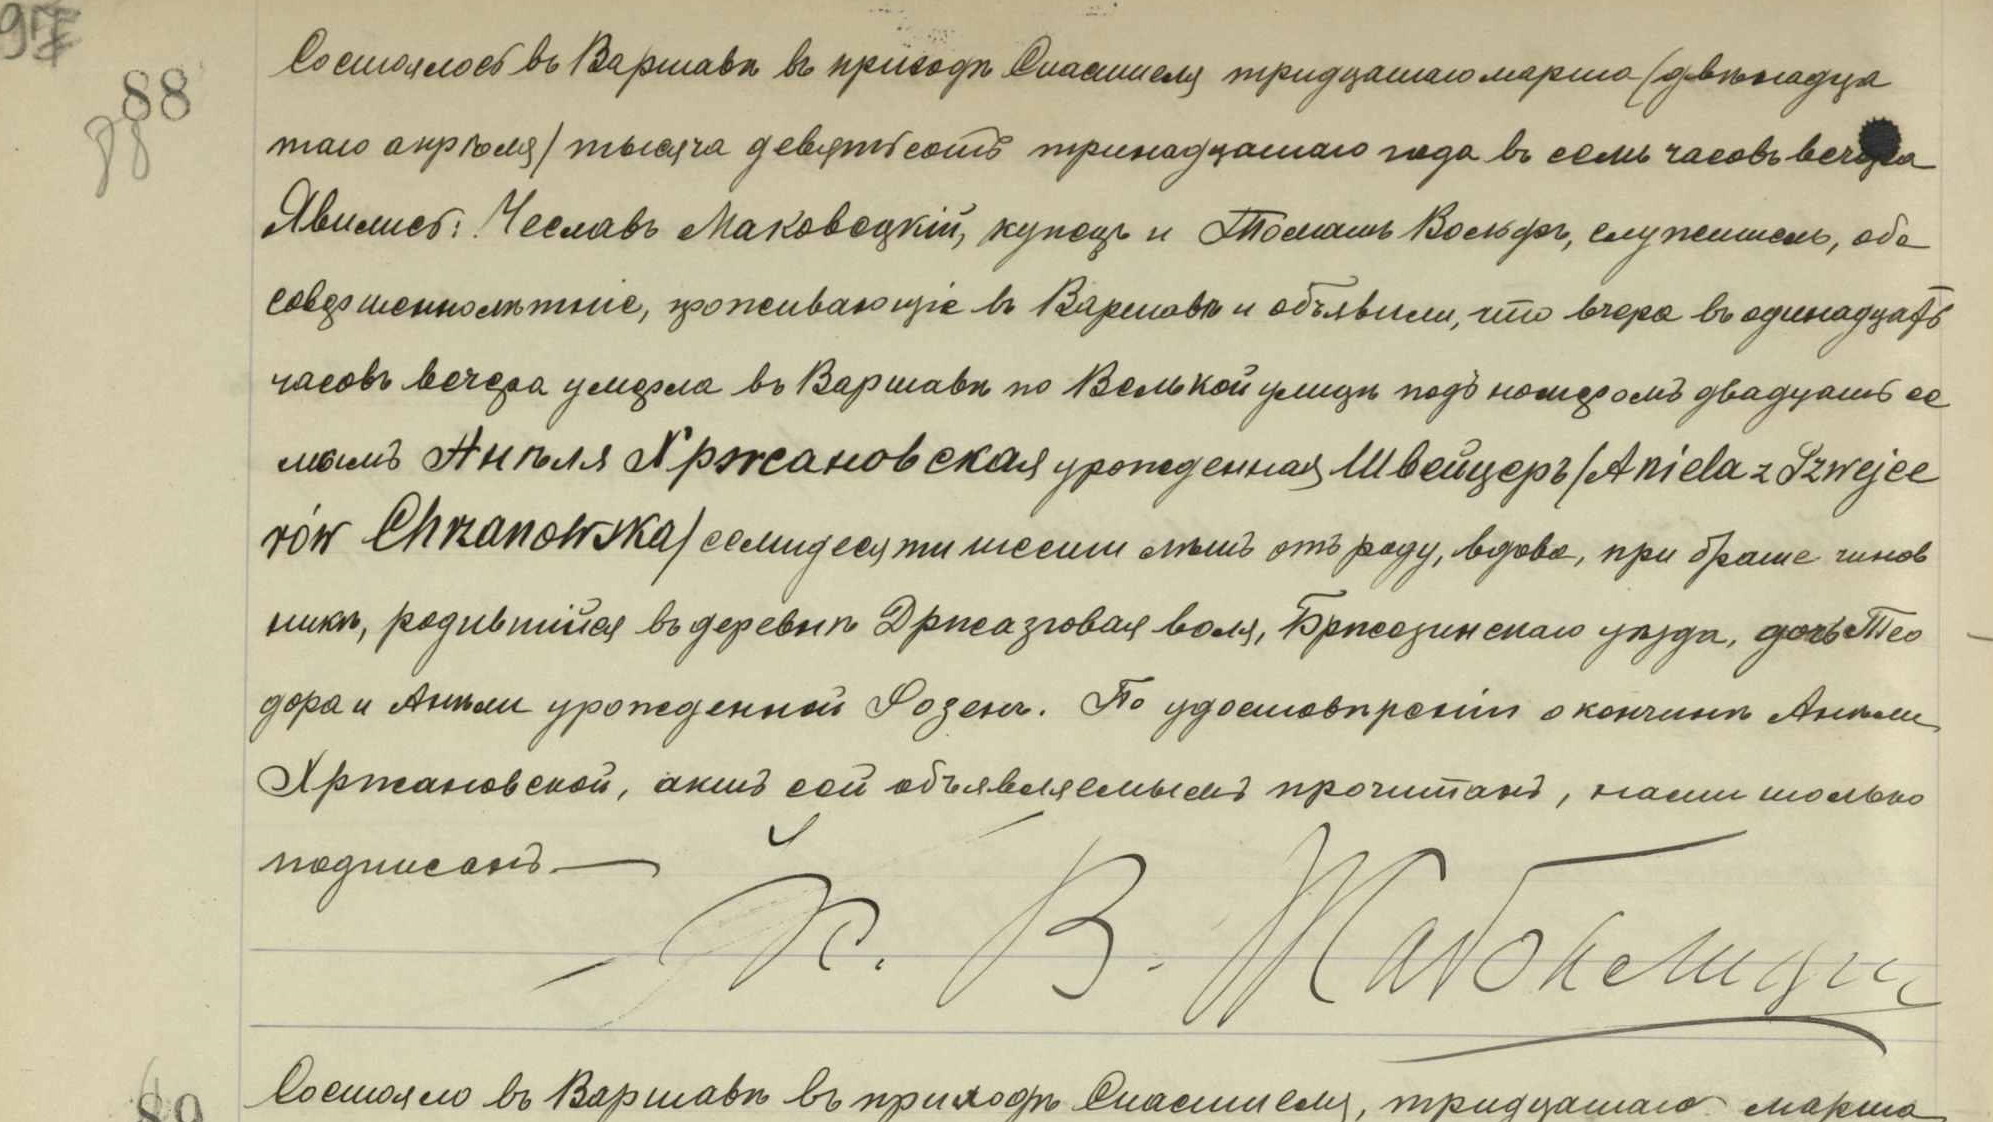 97
88
88
Состоялось въ Варшавѣ въ приходѣ Спасителя тридцатаго марта /двѣнадца
таго апрѣля/ тысяча девятьсотъ тринадцатаго года въ семь часовъ вечера
Явились: Чеславъ Маковецкій, купецъ и Томашъ Вольфъ, служитель, оба
совершеннолѣтніе, проживающіе въ Варшавѣ и объявили, что вчера въ одинадцать
часовъ вечера умерла въ Варшавѣ по Велькой улицѣ подъ номеромъ двадцать се
мымъ Анѣля Хржановская урожденная Швейцеръ /Aniela z Szwejce
rów Chrzanowska/ семидесяти шести лѣтъ отъ роду, вдова, при брате чинов
никѣ, родившійся въ деревнѣ Држазговая воля, Бржезинскаго уѣзда, дочь Тео
дора и Анѣли урожденной Розенъ. По удостовѣреніи о кончинѣ Анѣли
Хржановской, актъ сей объявляемымъ прочитанъ, нами только
подписанъ.
К. В.
89
Состояло въ Варшавѣ въ приходѣ Спасителя, тридцатаго марта